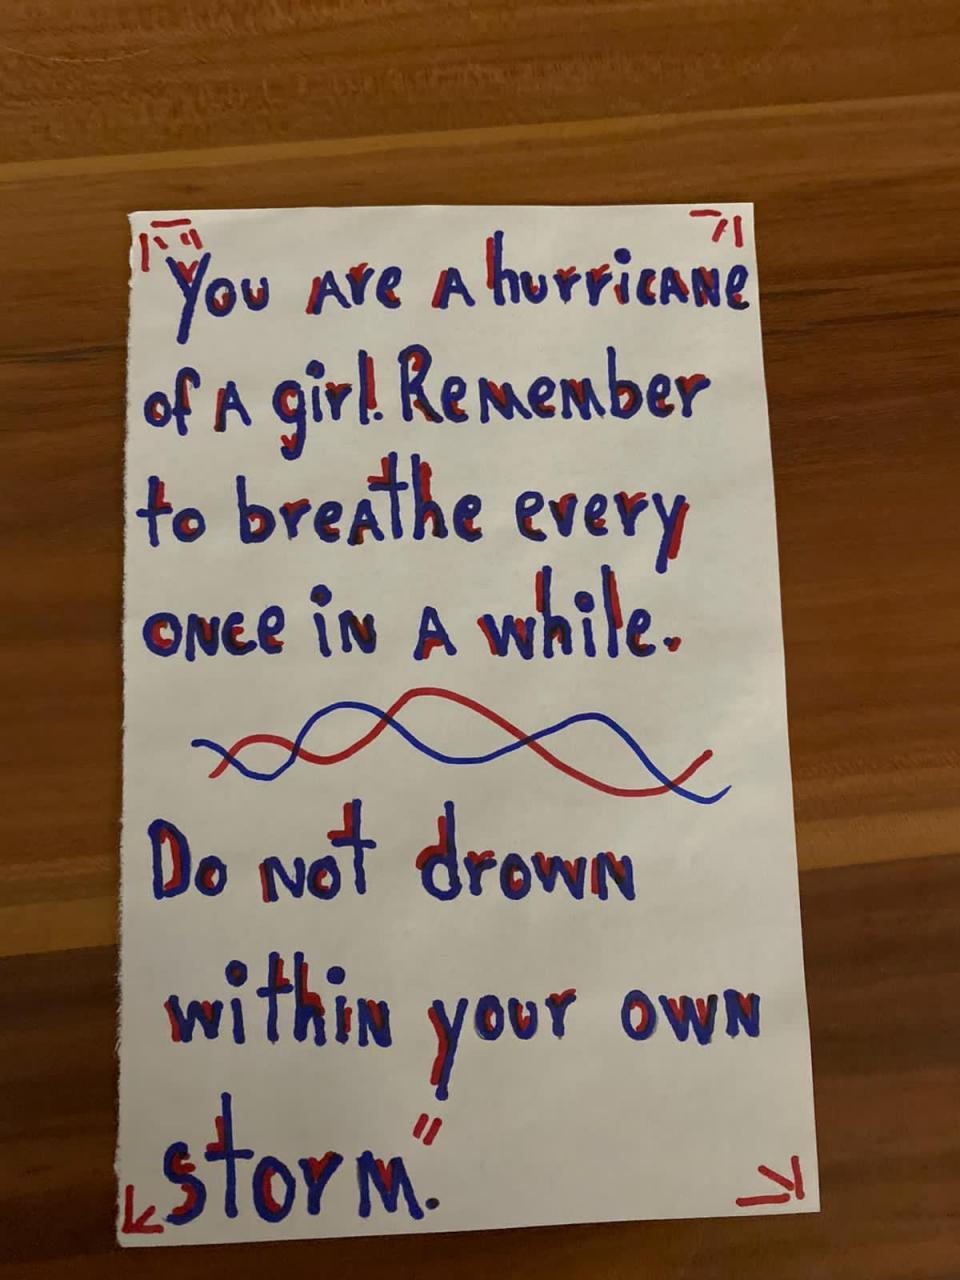 "You are a hurricane
of a girl. Remember
to breathe every
once in a while.
Do not drown
within your own
storm."